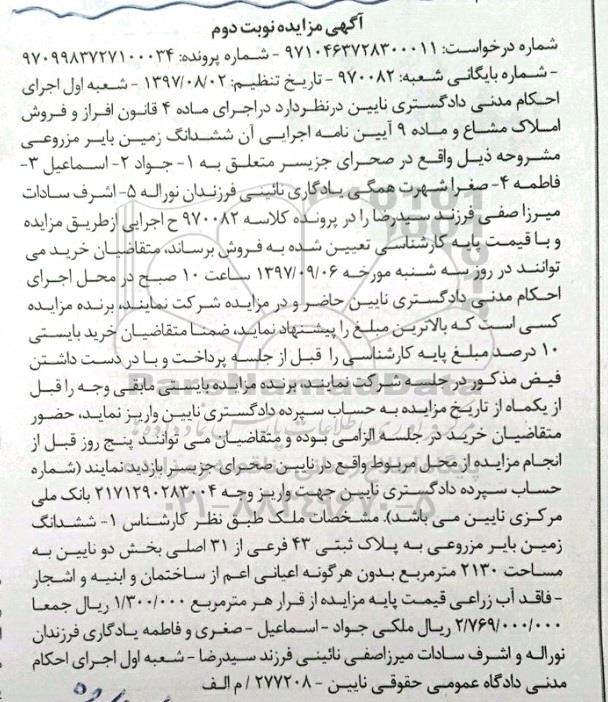 آگهی مزایده نوبت دوم
شماره درخواست: ۹۷۱۰۴۶۳۷۲۸۳۰۰۰۱۱ - شماره پرونده: ۹۷۰۹۹۸۳۷۲۷۱۰۰۰۳۴
- شماره بایگانی شعبه: ۹۷۰۰۸۲ - تاریخ تنظیم: ۱۳۹۷/۰۸/۰۲ - شعبه اول اجرای
احکام مدنی دادگستری نایین درنظردارد دراجرای ماده ۴ قانون افراز و فروش
املاک مشاع و ماده ۹ آیین نامه اجرایی آن ششدانگ زمین بایر مزروعی
مشروحه ذیل واقع در صحرای جزیسر متعلق به ۱- جواد ۲- اسماعیل ۳-
فاطمه ۴- صغرا شهرت همگی یادگاری نائینی فرزندان نوراله ۵- اشرف سادات
میرزا صفی فرزند سیدرضا را در پرونده کلاسه ۹۷۰۰۸۲ ح اجرایی ازطریق مزایده
و با قیمت پایه کارشناسی تعیین شده به فروش برساند، متقاضیان خرید می
توانند در روز سه شنبه مورخه ۱۳۹۷/۰۹/۰۶ ساعت ۱۰ صبح در محل اجرای
احکام مدنی دادگستری نایین حاضر و در مزایده شرکت نمایند، برنده مزایده
کسی است که بالاترین مبلغ را پیشنهاد نماید، ضمنا متقاضیان خرید بایستی
۱۰ درصد مبلغ پایه کارشناسی را قبل از جلسه پرداخت و با در دست داشتن
فیض مذکور در جلسه شرکت نمایند، برنده مزایده بایستی مابقی وجه را قبل
از یکماه از تاریخ مزایده به حساب سپرده دادگستری نایین واریز نماید، حضور
متقاضیان خرید در جلسه الزامی بوده و متقاضیان می توانند پنج روز قبل از
انجام مزایده از محل مربوط واقع در نایین صحرای جزیسر بازدید نمایند (شماره
حساب سپرده دادگستری نایین جهت واریز وجه ۲۱۷۱۲۹۰۲۸۳۰۰۴ بانک ملی
مرکزی نایین می باشد). مشخصات ملک طبق نظر کارشناس ۱- ششدانگ
زمین بایر مزروعی به پلاک ثبتی ۴۳ فرعی از ۳۱ اصلی بخش دو نایین به
مساحت ۲۱۳۰ مترمربع بدون هرگونه اعیانی اعم از ساختمان و ابنیه و اشجار
- فاقد آب زراعی قیمت پایه مزایده از قرار هر مترمربع ۱/۳۰۰/۰۰۰ ریال جمعا
۲/۷۶۹/۰۰۰/۰۰۰ ریال ملکی جواد - اسماعیل - صغری و فاطمه یادگاری فرزندان
نوراله و اشرف سادات میرزاصفی نائینی فرزند سیدرضا - شعبه اول اجرای احکام
مدنی دادگاه عمومی حقوقی نایین - ۲۷۷۲۰۸ / م الف
ParsNamadData
۰۲۱-۸۸۳۴۹۶۷۰-۵